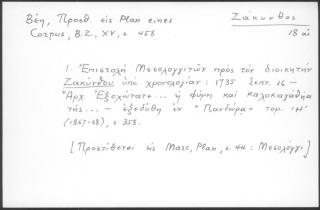 Βέη, Προσθ. εἰς Plan eines
Corpus, B.Z., XV, σ. 458
Ζάκυνθος
18 αἰ
1. Ἐπιστολὴ Μεσολογγιτῶν πρὸς τὸν διοικητὴν
Ζακύνθου ὑπὸ χρονολογίαν: 1735 Σεπτ. 16 –
"Ἀρχ. Ἐξοχώτατε... ἡ φήμη καὶ καλοκαγαθία
της... – ἐξεδόθη ἐν "Πανδώρᾳ" τομ. ΙΗ'
(1867-68), σ. 358.
[Προστίθεται εἰς Marc, Plan, σ. 44: Μεσολόγγι]